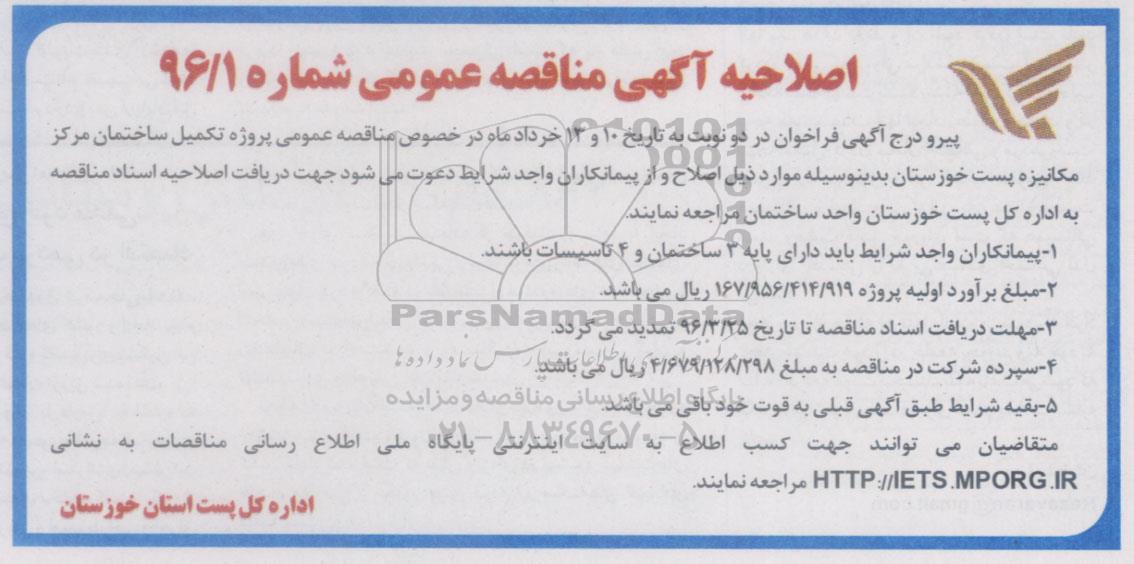 اصلاحیه آگهی مناقصه عمومی شماره ۹۶/۱
پیرو درج آگهی فراخوان در دو نوبت به تاریخ ۱۰ و ۱۳ خرداد ماه در خصوص مناقصه عمومی پروژه تکمیل ساختمان مرکز
مکانیزه پست خوزستان بدینوسیله موارد ذیل اصلاح و از پیمانکاران واجد شرایط دعوت می شود جهت دریافت اصلاحیه اسناد مناقصه
به اداره کل پست خوزستان واحد ساختمان مراجعه نمایند.
۱-پیمانکاران واجد شرایط باید دارای پایه ۳ ساختمان و ۴ تاسیسات باشند.
۲-مبلغ برآورد اولیه پروژه ۱۶۷/۹۵۶/۴۱۴/۹۱۹ ریال می باشد.
ParsNamadData
۳-مهلت دریافت اسناد مناقصه تا تاریخ ۹۶/۳/۲۵ تمدید می گردد.
۴-سپرده شرکت در مناقصه به مبلغ ۴/۶۷۹/۱۲۸/۲۹۸ ریال می باشد.
پایگاه اطلاع رسانی مناقصه و مزایده
۵-بقیه شرایط طبق آگهی قبلی به قوت خود باقی می باشد.
۰۲۱-۸۸۳۴۹۶۷۰-۵
متقاضیان می توانند جهت کسب اطلاع به سایت اینترنتی پایگاه ملی اطلاع رسانی مناقصات به نشانی
HTTP://IETS.MPORG.IR مراجعه نمایند.
اداره کل پست استان خوزستان